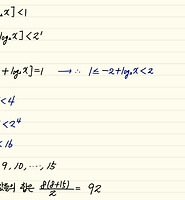 x] < 1
log₂x] < 2¹
+ log₂x] = 1 → ∴ 1 ≤ -2 + log₂x < 2
< 4
< 2⁴
< 16
9, 10, ⋯, 15
합은 8(8+15)/2 = 92